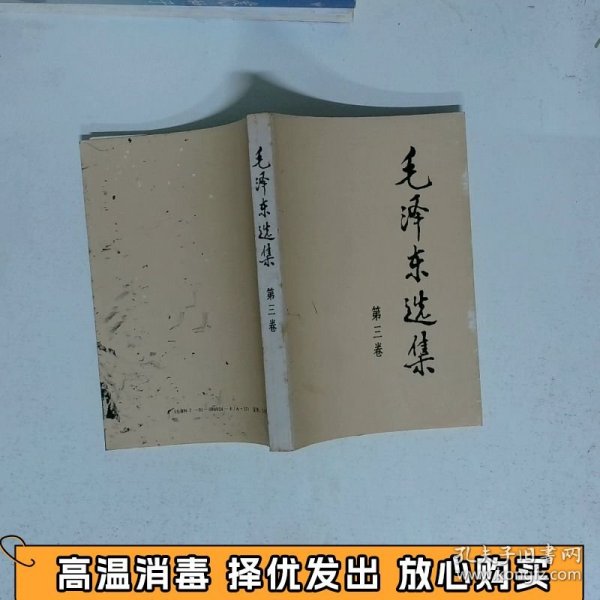 毛泽东选集
第三卷
毛泽东选集
第三卷
高温消毒 择优发出 放心购买
孔夫子旧书网
www.kongfz.com